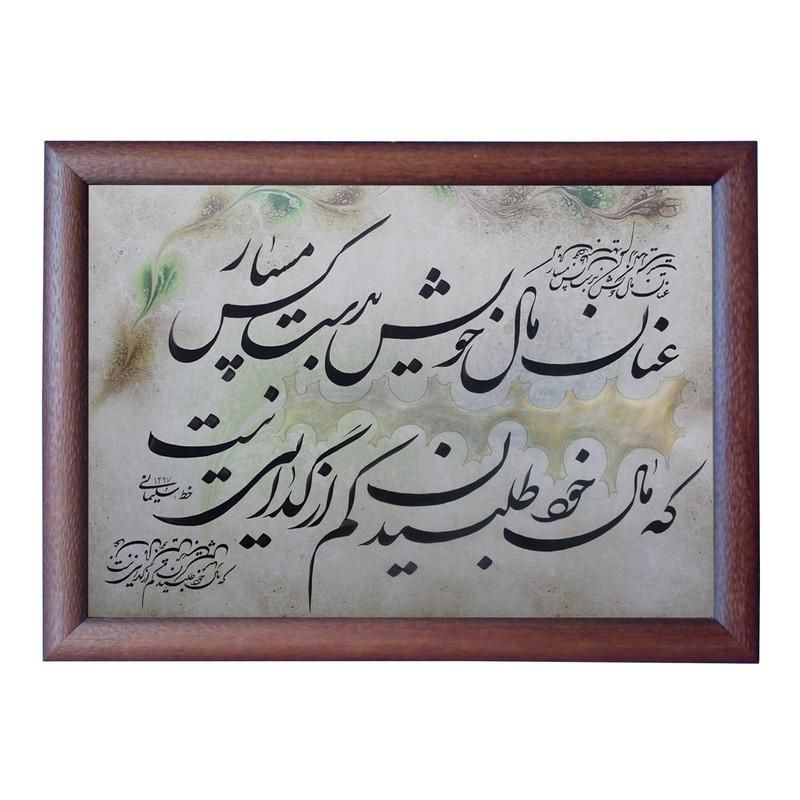 عنان مال خویش بدست کس مسپار
که مال خود طلبیدن کم از گدایی نیست
خط سلیمانی
۱۳۹۷